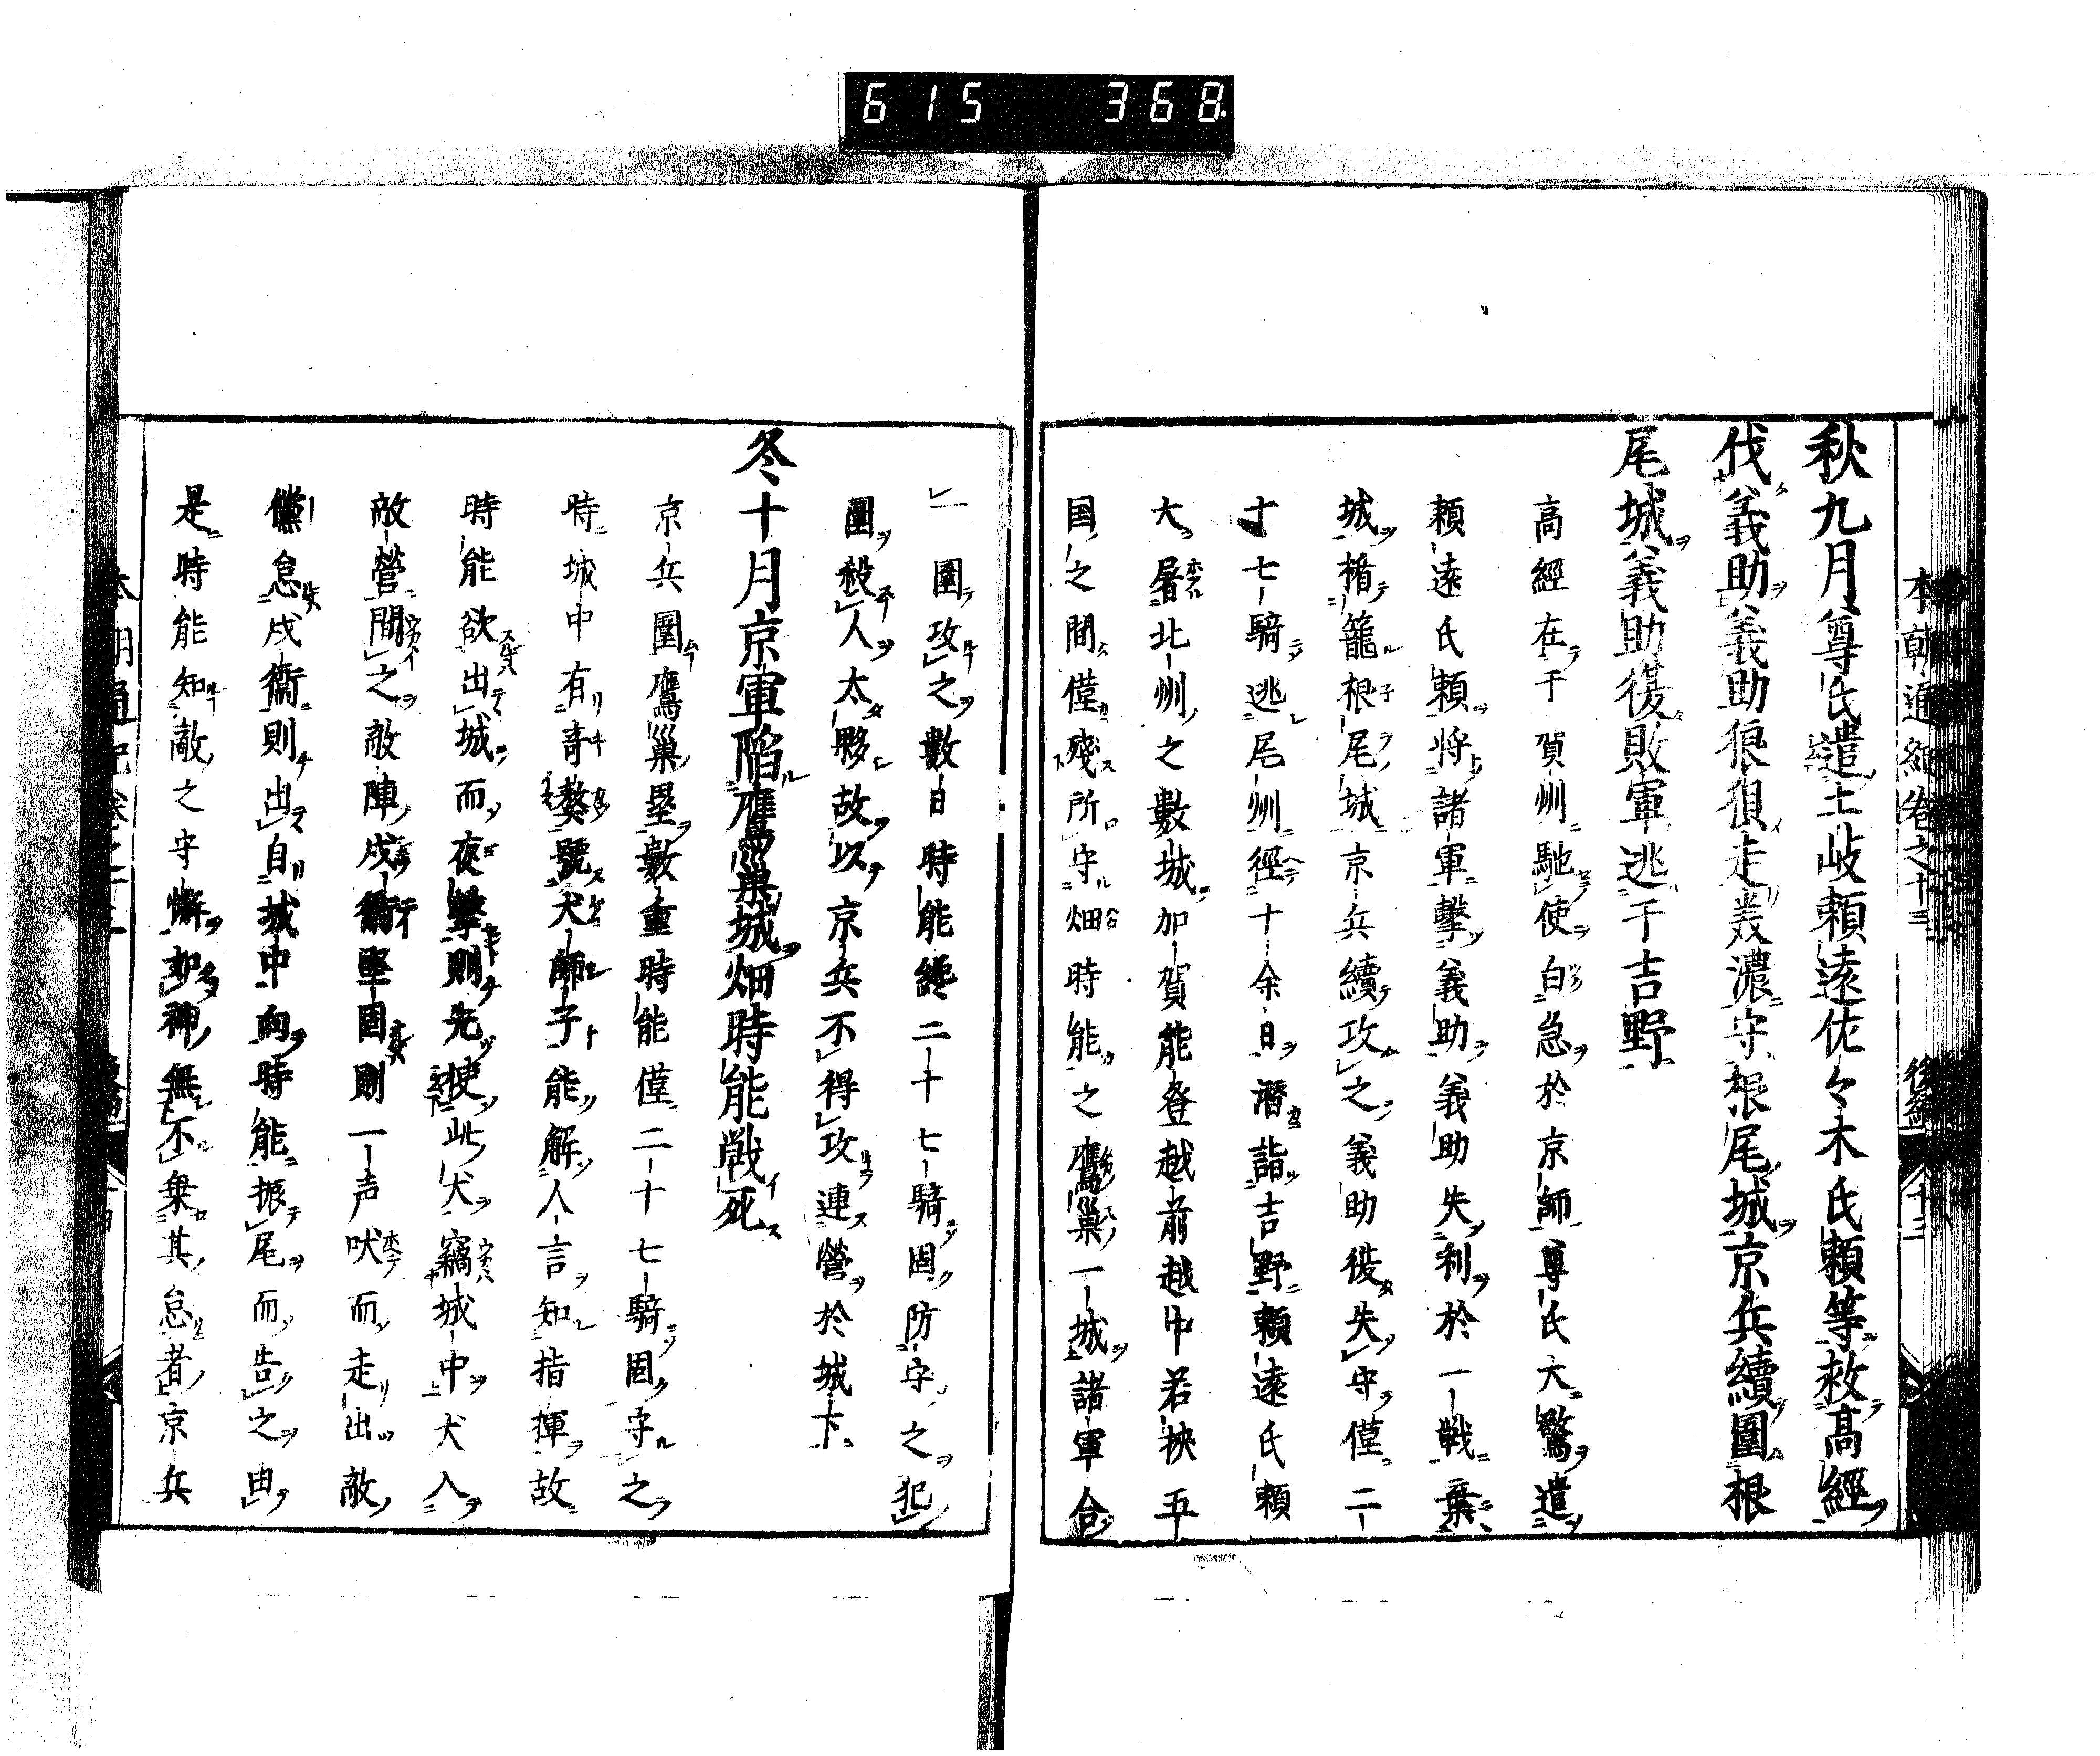 615 368
本朝通紀卷之十三 後編 十三
秋九月尊氏遣土岐頼遠佐々木氏頼等救高經
伐義助義助狼狽走美濃守根尾城京兵續圍根
尾城義助復敗軍逃于吉野
高經在于賀州馳使白急於京師尊氏大驚遣
頼遠氏頼將諸軍擊義助義助失利於一戦棄
城楯籠根尾城京兵續攻之義助復失守僅二
十七騎逃尾州徑十余日潜詣吉野頼遠氏頼
大屠北州之數城加賀能登越前越中若狹五
国之間僅殘所守畑時能之鷹巢一城諸軍合
一圍攻之數日時能纔二十七騎固防守之犯
圍殺人太夥故以京兵不得攻連營於城下
冬十月京軍陷鷹巢城畑時能戦死
京兵圍鷹巢塁數重時能僅二十七騎固守之
時城中有奇獒號犬師子能解人言知指揮故
時能欲出城而夜擊則先使此犬竊城中犬入
敵營間之敵陣戍衞堅固則一声吠而走出敵
儻怠戍衞則出自城中向時能振尾而告之由
是時能知敵之守懈如神無不乗其怠者京兵